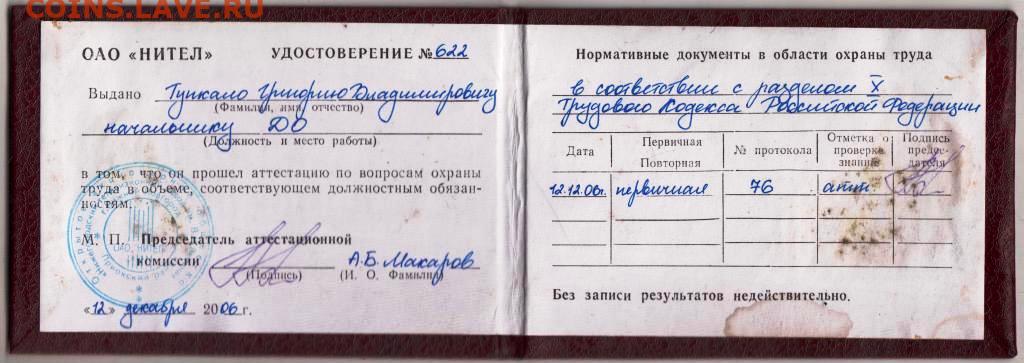 COINS.LAVE.RU
ОАО «НИТЕЛ» УДОСТОВЕРЕНИЕ № 622
Выдано Гункало Григорию Владимировичу
(Фамилия, имя, отчество)
начальнику ДО
(Должность и место работы)
в том, что он прошел аттестацию по вопросам охраны
труда в объеме, соответствующем должностным обязан-
ностям.
М. П. Председатель аттестационной
комиссии А.Б. Макаров
(Подпись) (И. О. Фамилия)
«12» декабря 2006 г.
ОАО „НИТЕЛ"
Нормативные документы в области охраны труда
в соответствии с разделом X
Трудового Кодекса Российской Федерации
Дата Первичная Повторная № протокола Отметка о проверке знаний Подпись председателя
12.12.06г. первичная 76 атт
Без записи результатов недействительно.